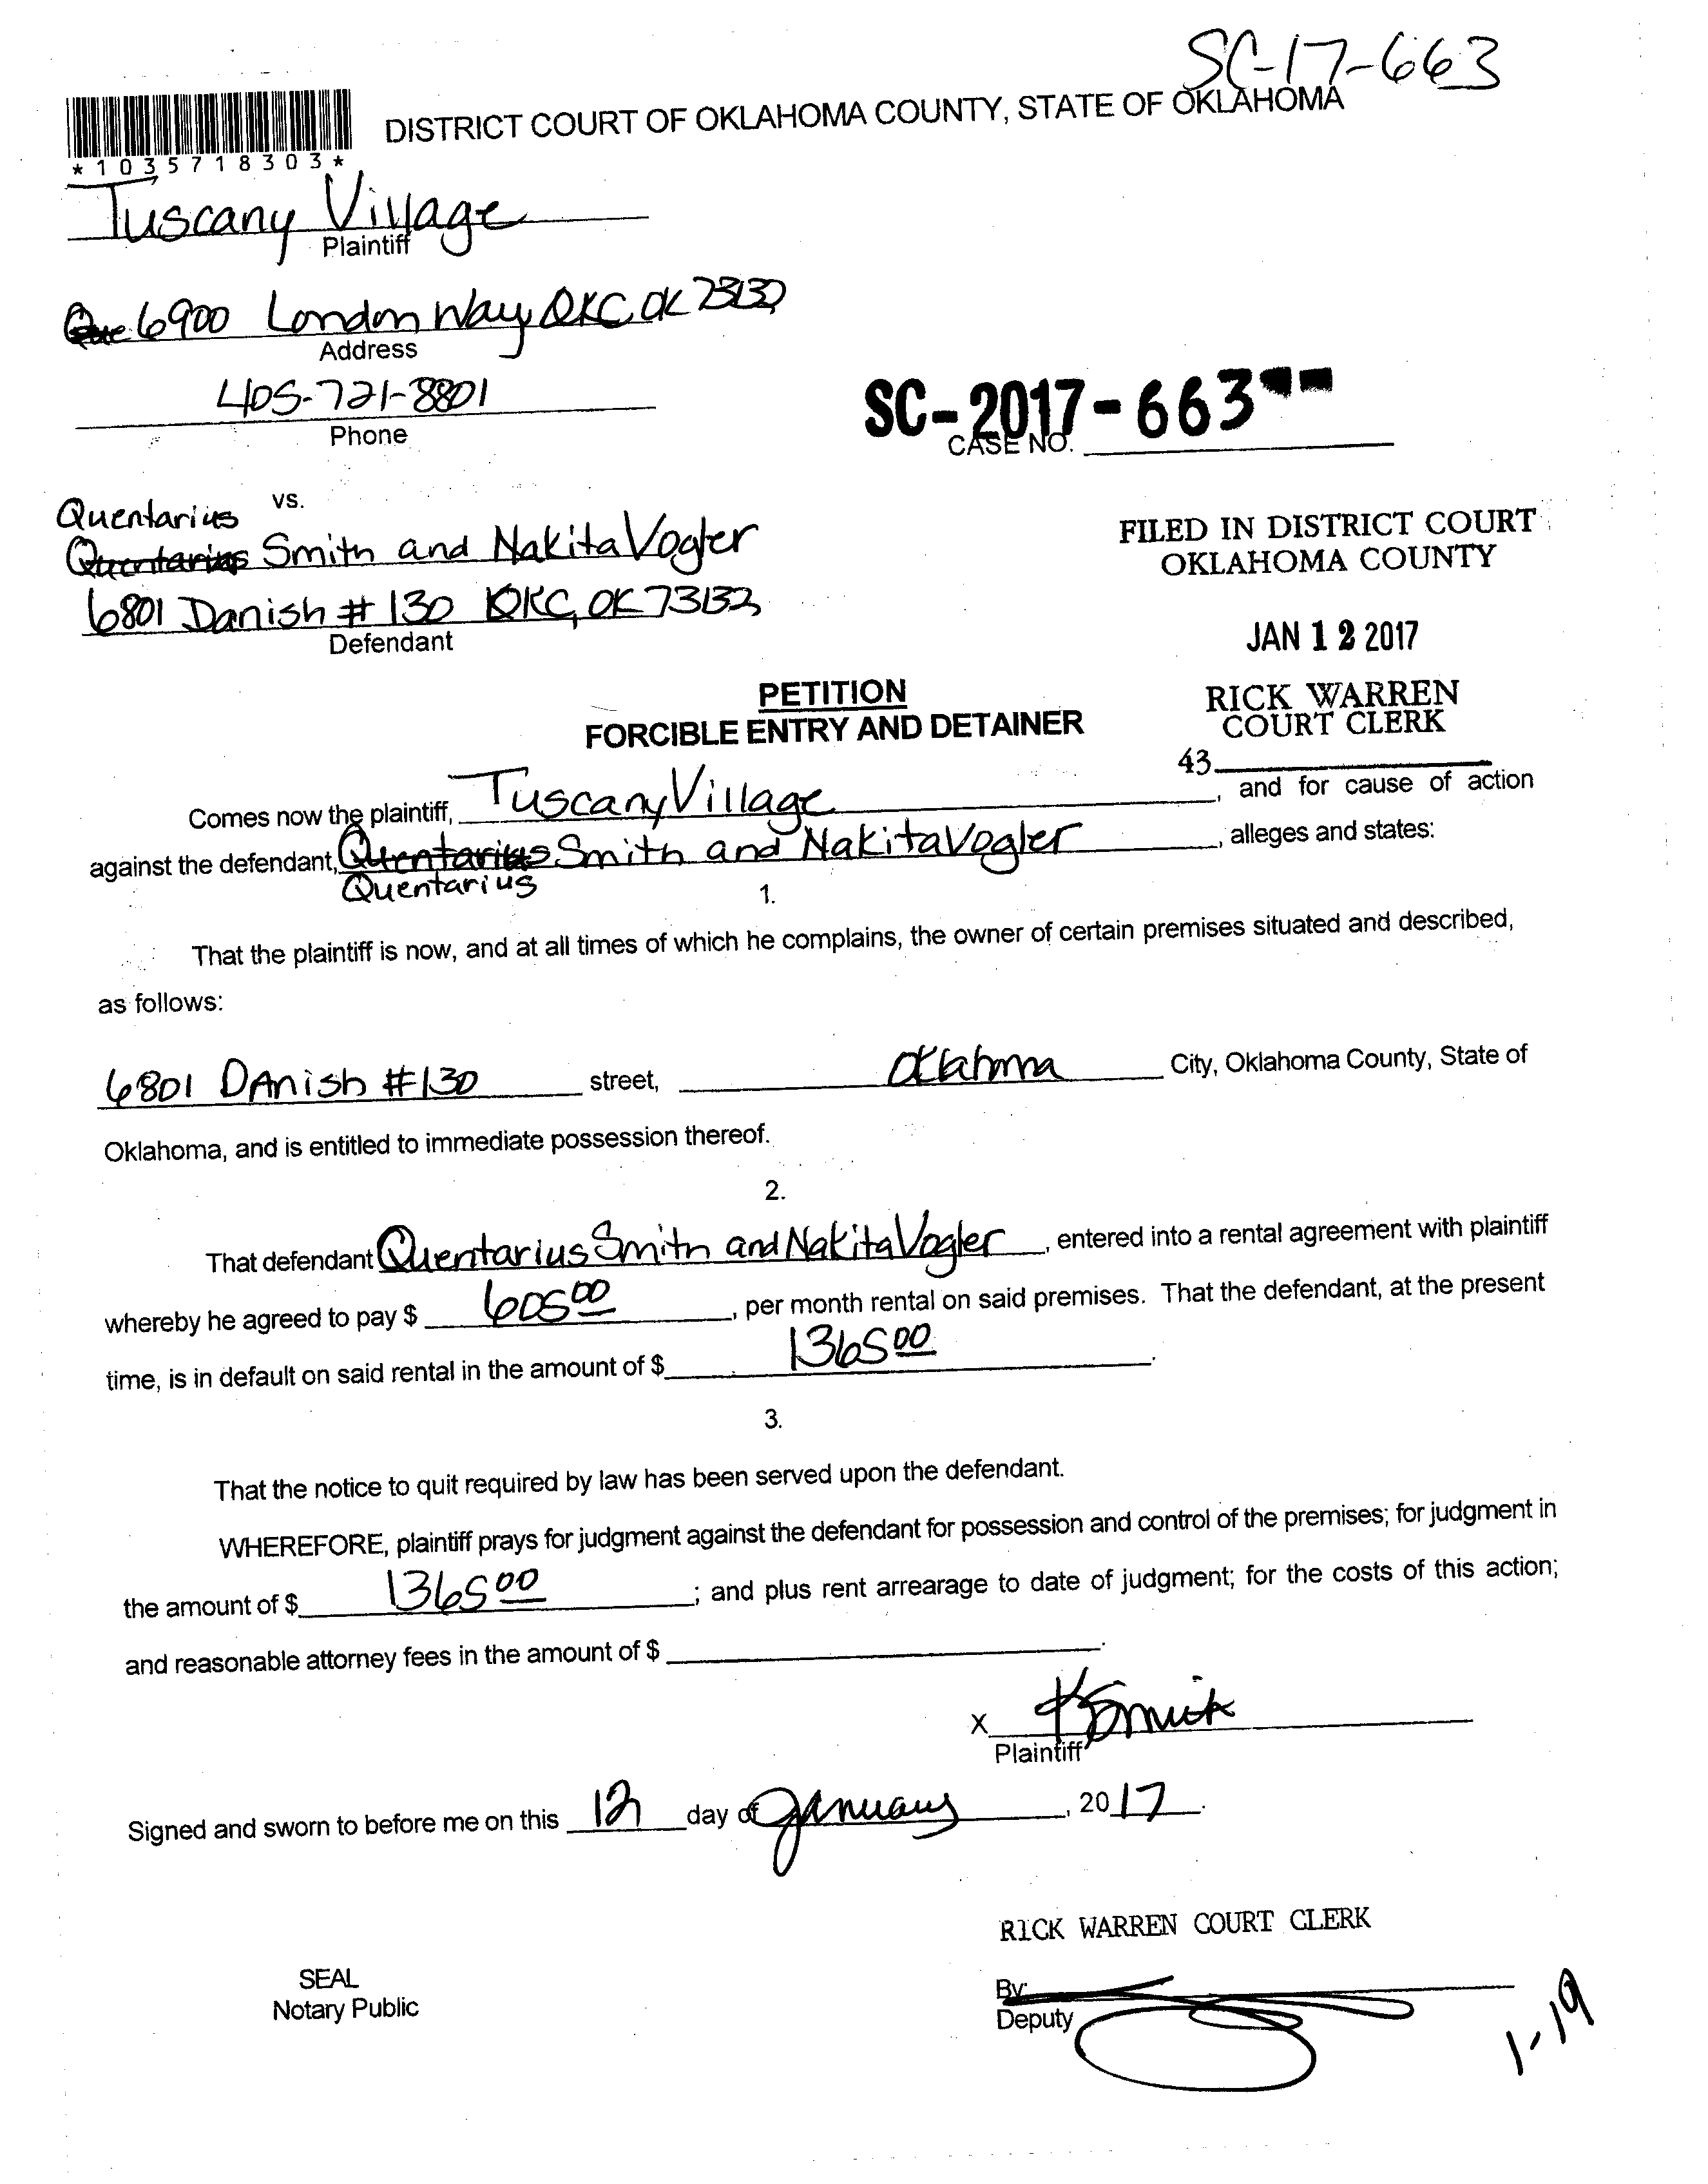 SC-17-663
DISTRICT COURT OF OKLAHOMA COUNTY, STATE OF OKLAHOMA
*1035718303*
Tuscany Village
Plaintiff
6900 London Way OKC OK 73132
Address
405-721-8801
Phone
SC-2017-663
CASE NO.
vs.
Quentarius
Quentarius Smith and Nakita Vogler
6801 Danish # 130 OKC, OK 73132
Defendant
FILED IN DISTRICT COURT
OKLAHOMA COUNTY
JAN 12 2017
RICK WARREN
COURT CLERK
43
PETITION
FORCIBLE ENTRY AND DETAINER
Comes now the plaintiff, Tuscany Village, and for cause of action
against the defendant, Quentarius Smith and Nakita Vogler, alleges and states:
Quentarius
1.
That the plaintiff is now, and at all times of which he complains, the owner of certain premises situated and described,
as follows:
6801 DAnish #130 street, Oklahoma City, Oklahoma County, State of
Oklahoma, and is entitled to immediate possession thereof.
2.
That defendant Quentarius Smith and Nakita Vogler, entered into a rental agreement with plaintiff
whereby he agreed to pay $ 605 00, per month rental on said premises. That the defendant, at the present
time, is in default on said rental in the amount of $ 1365 00.
3.
That the notice to quit required by law has been served upon the defendant.
WHEREFORE, plaintiff prays for judgment against the defendant for possession and control of the premises; for judgment in
the amount of $ 1365 00; and plus rent arrearage to date of judgment; for the costs of this action;
and reasonable attorney fees in the amount of $ .
X
Plaintiff
Signed and sworn to before me on this 12 day of January, 2017.
RICK WARREN COURT CLERK
SEAL
Notary Public
By:
Deputy
1-19